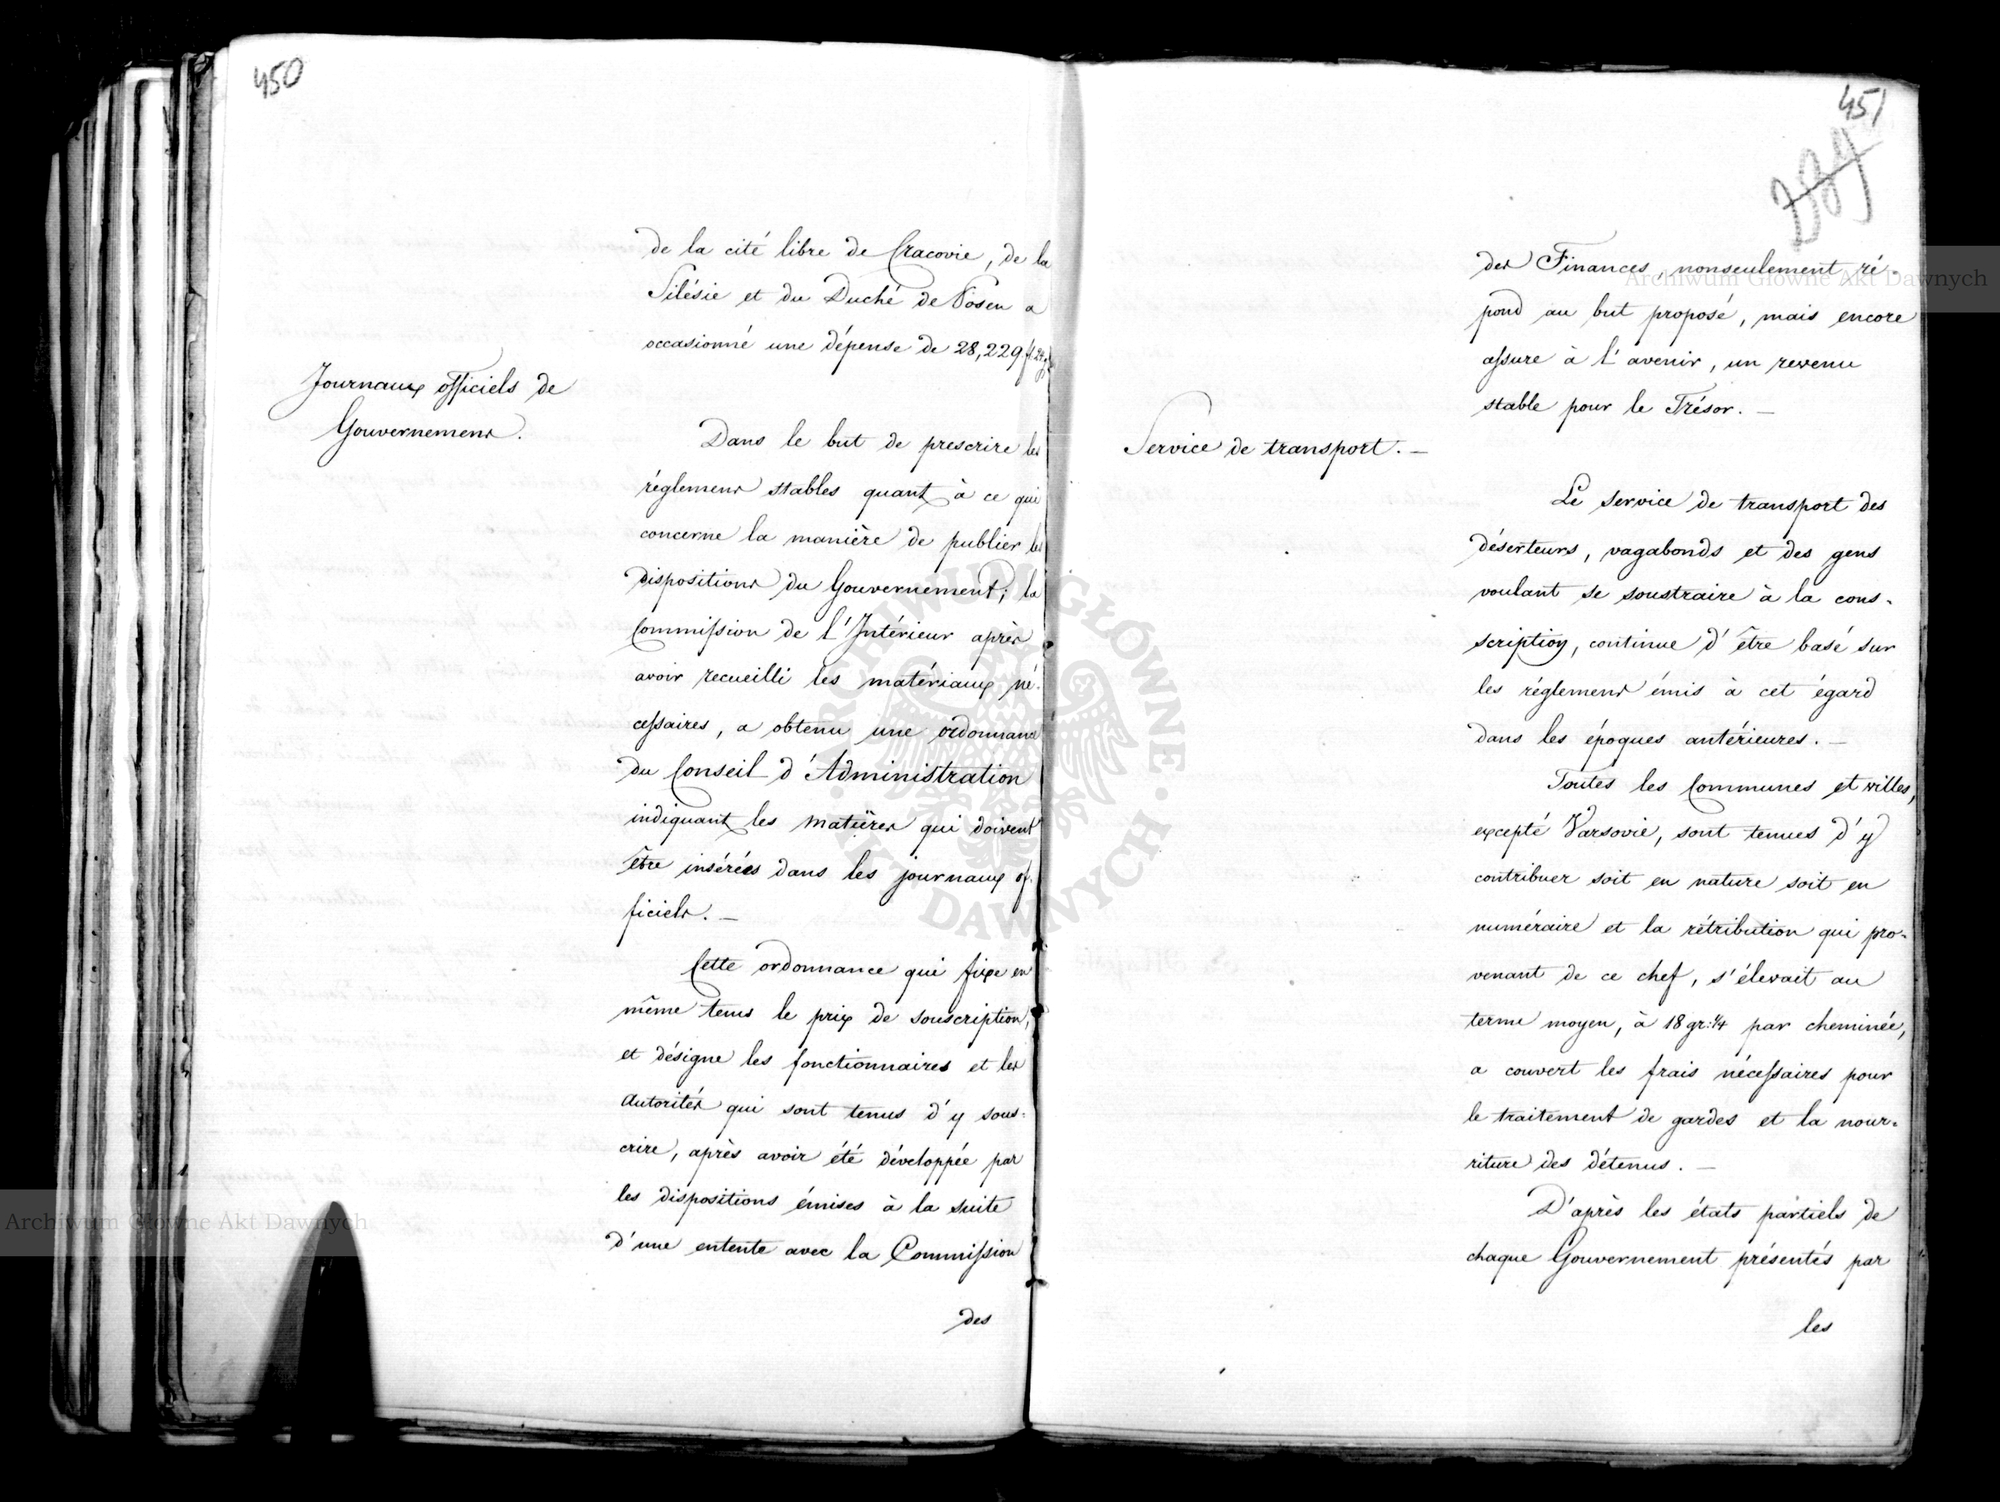 450
de la cité libre de Cracovie, de la
Silésie et du Duché de Posen a
occasionné une dépense de 28,229 fl.
Journaux officiels de
Gouvernement.
Dans le but de prescrire les
réglemens stables quant à ce qui
concerne la manière de publier les
dispositions du Gouvernement; la
Commission de l'Intérieur après
avoir recueilli les matériaux né-
cessaires, a obtenu une ordonnance
du Conseil d'Administration
indiquant les matières qui doivent
être insérées dans les journaux of-
ficiels. —
Cette ordonnance qui fixe en
même tems le prix de souscription,
et désigne les fonctionnaires et les
Autorités qui sont tenus d'y sous-
crire, après avoir été développée par
les dispositions émises à la suite
d'une entente avec la Commission
des
451
des Finances, nonseulement ré-
pond au but proposé, mais encore
assure à l'avenir, un revenu
stable pour le Trésor. —
Service de transport. —
Le service de transport des
déserteurs, vagabonds et des gens
voulant se soustraire à la cons-
cription, continue d'être basé sur
les réglemens émis à cet égard
dans les époques antérieures. —
Toutes les Communes et villes,
excepté Varsovie, sont tenues d'y
contribuer soit en nature soit en
numéraire et la rétribution qui pro-
venant de ce chef, s'élevait au
terme moyen, à 18 gr: 1/4 par cheminée,
a couvert les frais nécessaires pour
le traitement de gardes et la nour-
riture des détenus. —
D'après les états partiels de
chaque Gouvernement présentés par
les
Archiwum Główne Akt Dawnych
Archiwum Główne Akt Dawnych
ARCHIWUM GŁÓWNE AKT DAWNYCH